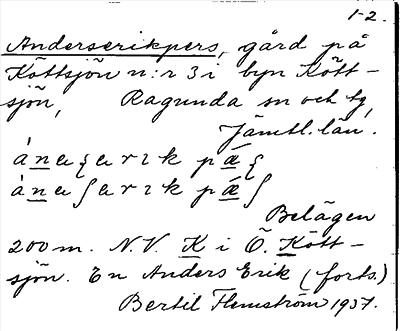 1-2.
Anderserikpers, gård på
Köttsjön n:r 3 i byn Kött-
sjön, Ragunda sn och tg,
Jämtl. län.
Belägen
200 m. N.V. K i Ö. Kött-
sjön. En Anders Erik (forts.)
Bertil Flemström 1937.